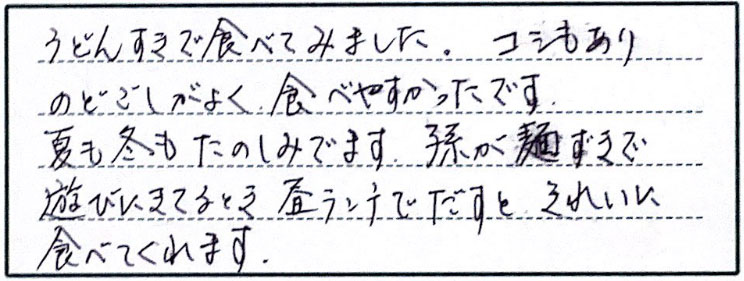 うどんすきで食べてみました。 コシもあり
のどごしがよく 食べやすかったです.
夏も冬も たのしみでます. 孫が麺ずきで
遊びにきてるとき 昼ランチでだすと きれいに
食べてくれます.